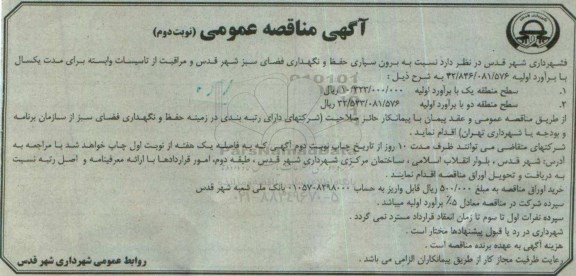 آگهی مناقصه عمومی (نوبت دوم)
شهرداری شهر قدس در نظر دارد نسبت به برون سپاری حفظ و نگهداری فضای سبز شهر قدس و مراقبت از تاسیسات وابسته برای مدت یکسال
با برآورد اولیه ۴۲/۸۴۶/۰۸۱/۵۷۶ به شرح ذیل :
۱. سطح منطقه یک با برآورد اولیه ۳۰۰/۰۰۰/۰۰۰ ریال
۲. سطح منطقه دو با برآورد اولیه ۲۲/۵۴۳/۰۸۱/۵۷۶
از طریق مناقصه عمومی و عقد پیمان با پیمانکار حائز صلاحیت (شرکتهای دارای رتبه بندی در زمینه حفظ و نگهداری فضای سبز از سازمان برنامه
و بودجه یا شهرداری تهران) اقدام نماید .
شرکتهای متقاضی می توانند ظرف مدت ۱۰ روز از تاریخ چاپ نوبت دوم آگهی که به فاصله یک هفته از نوبت اول چاپ خواهد شد با مراجعه به
آدرس: شهر قدس ، بلوار انقلاب اسلامی ، ساختمان مرکزی شهرداری شهر قدس ، طبقه دوم، امور قراردادها با ارائه معرفینامه و اصل رتبه نسبت
به دریافت و تحویل اوراق مناقصه اقدام نمایند .
خرید اوراق مناقصه به مبلغ ۵۰۰/۰۰۰ ریال قابل واریز به حساب ۰۱۰۵۷۰۸۲۹۸۰۰۰ بانک ملی شعبه شهر قدس
سپرده شرکت در مناقصه معادل ۵٪ برآورد اولیه میباشد .
سپرده نفرات اول تا سوم تا زمان انعقاد قرارداد مسترد نمی گردد .
شهرداری در رد یا قبول پیشنهادها مختار است .
هزینه آگهی به عهده برنده مناقصه است .
رعایت ظرفیت مجاز کار از طریق پیمانکاران الزامی می باشد .
روابط عمومی شهرداری شهر قدس